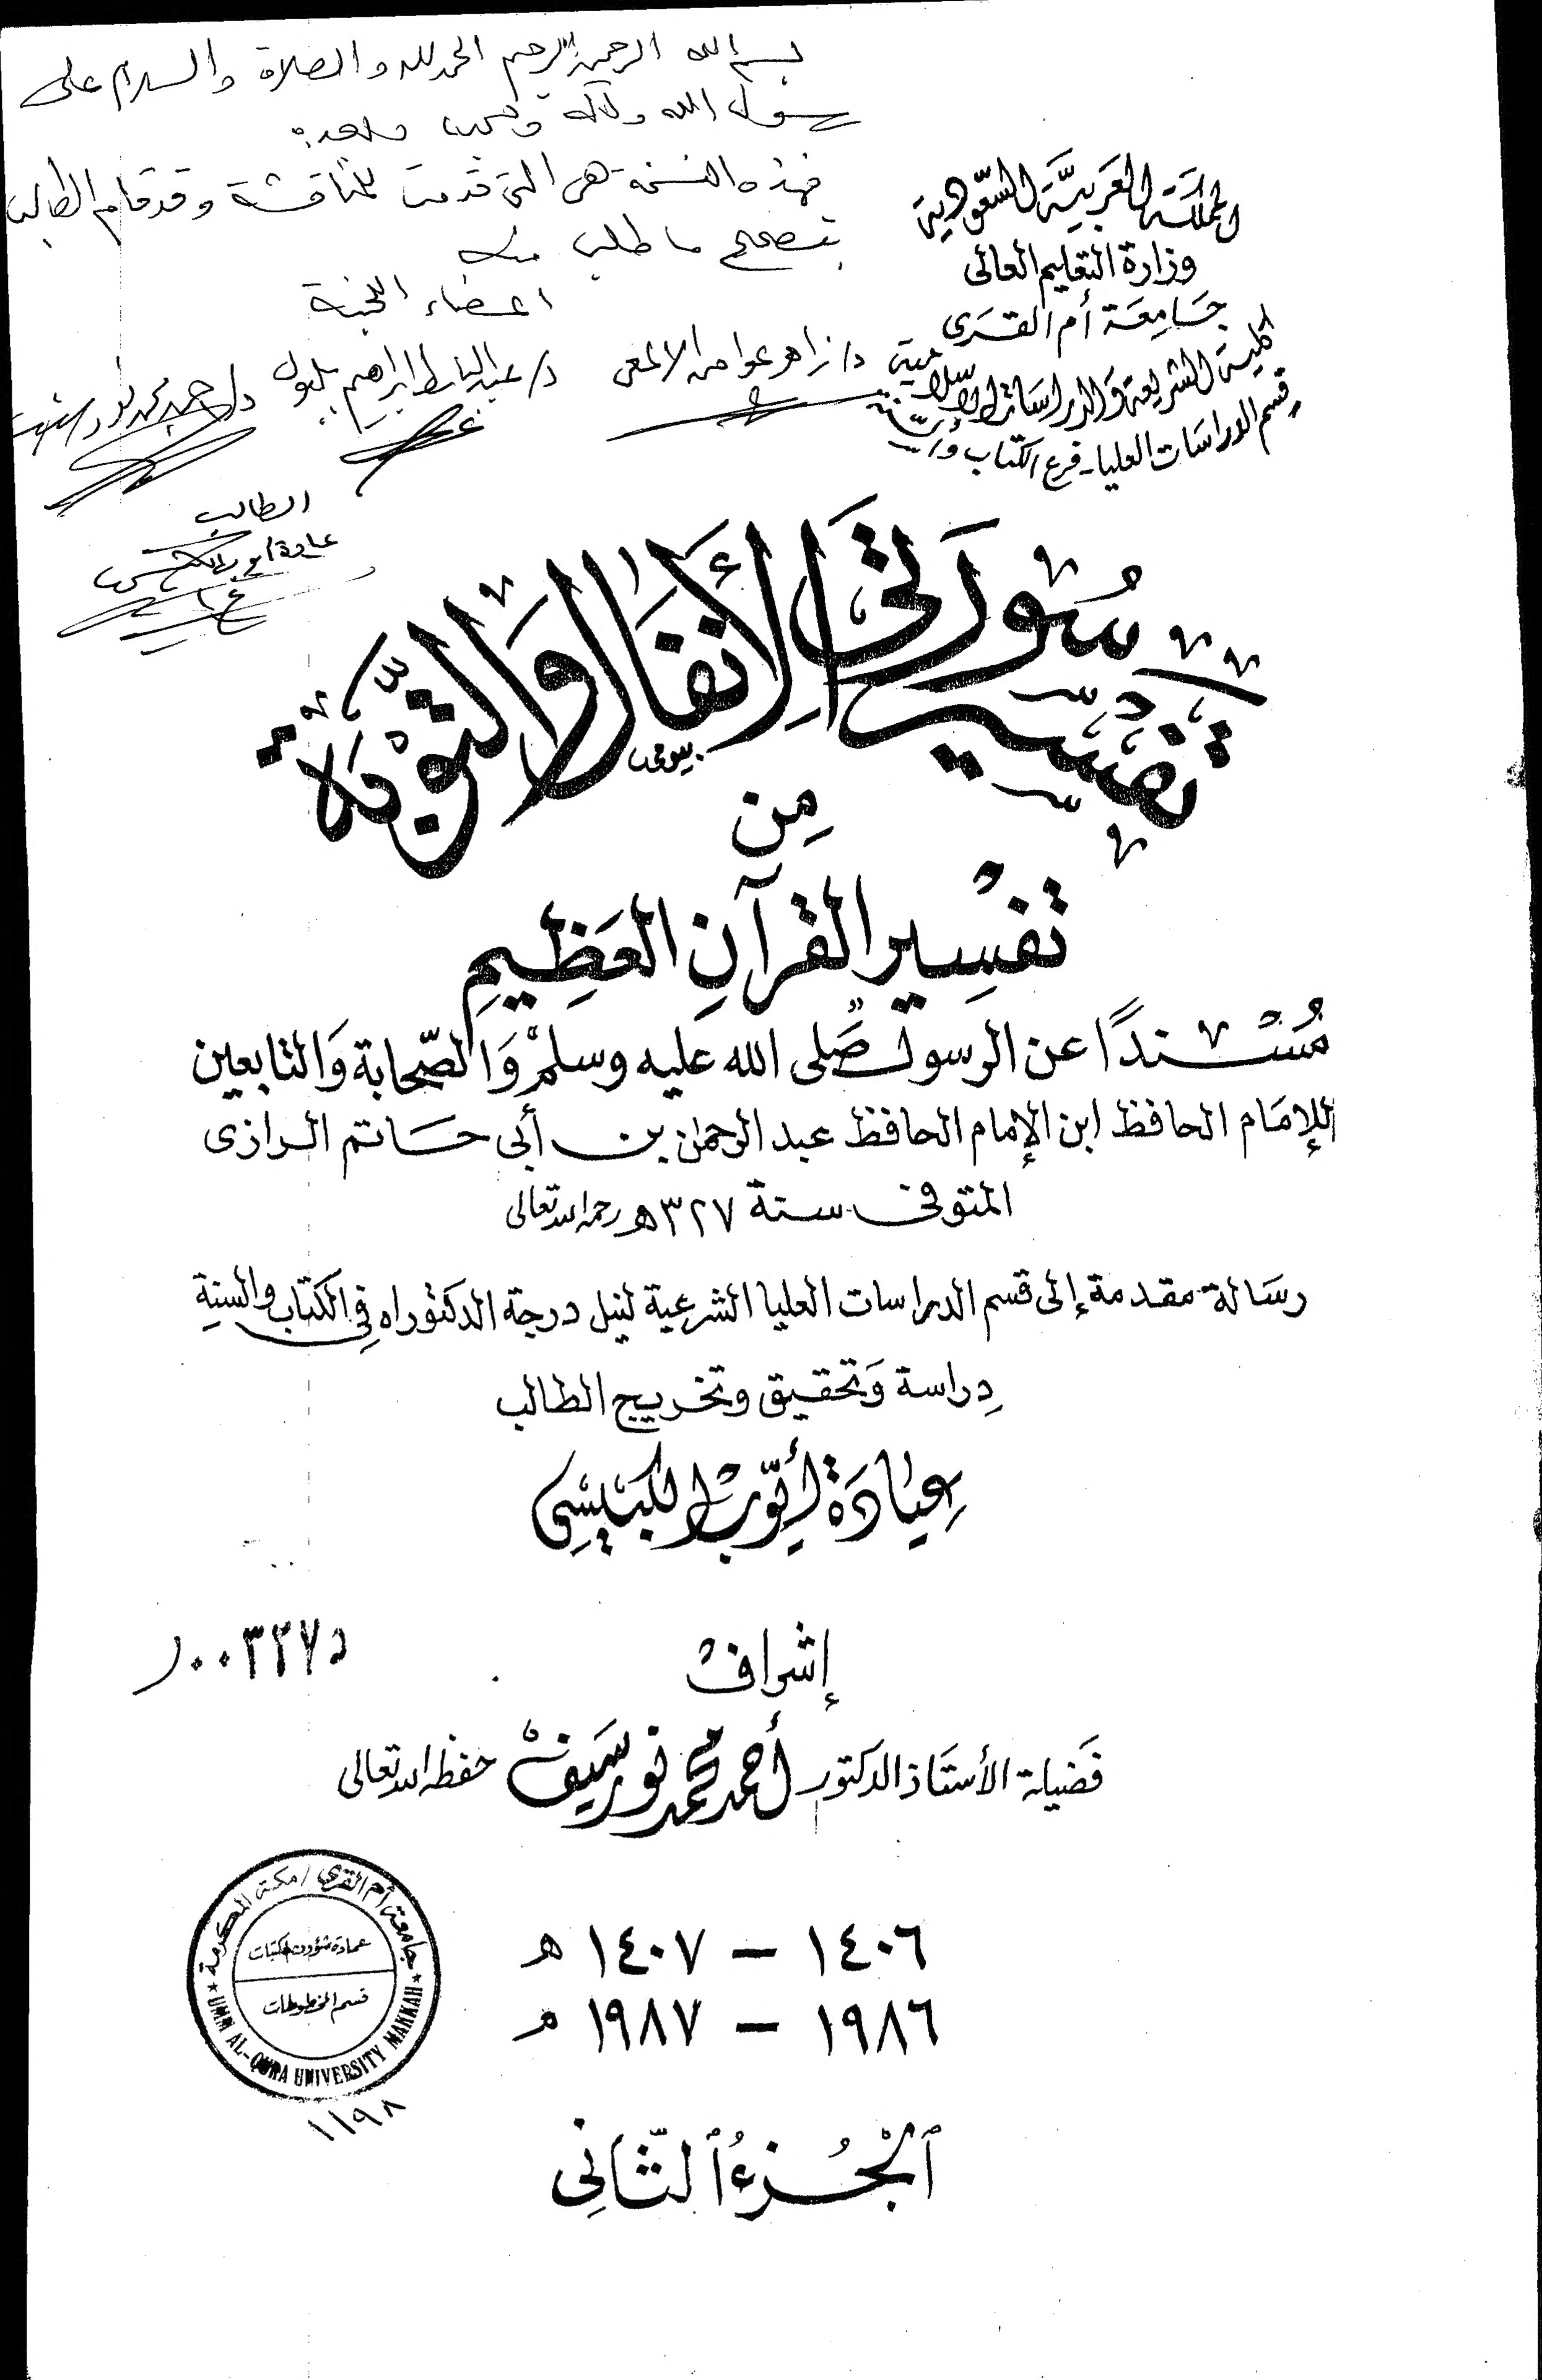 بسم الله الرحمن الرحيم الحمد لله والصلاة والسلام على
رسول الله وآله وصحبه وبعد:
فهذه النسخة هي التي قدمت للمناقشة وقد قام الطالب
بتصحيح ما طلب منه
أعضاء اللجنة
د/ زاهر عواض الألمعي د/ عبد الباسط إبراهيم بلبول د/ أحمد محمد نور سيف
الطالب
عيادة أيوب الكبيسي
المملكة العربية السعودية
وزارة التعليم العالى
جامعة أم القرى
كلية الشريعة والدراسات الإسلامية
قسم الدراسات العليا - فرع الكتاب والسنة
تفسير سورتي الأنفال والتوبة
بيومى
مِن
تفسير القرآنِ العَظِيمِ
مُسْنداً عن الرسول صَلى الله عليه وسلم وَالصّحابة وَالتابعين
للإمَام الحافظ ابن الإمام الحافظ عبد الرحمن بن أبى حَاتم الرازى
المتوفى سنة ٣٢٧ هـ رحمه الله تعالى
رسَالة مقدمة إلى قسم الدراسات العليا الشرعية لنيل درجة الدكتوراه فِى الكتاب والسنةِ
دِراسة وَتحقيق وتخريج الطالب
عِيَادَة أيّوب الكبَيسِى
إشراف
د ٠٠٣٢٧ر
فَضيلة الأستَاذ الدكتور أحمد محمد نور سَيف حفظه الله تعالى
جامعة أم القرى / مكة المكرمة
عمادة شؤون المكتبات
قسم المخطوطات
UMM AL-QURA UNIVERSITY MAKKAH
١١٩٨
١٤٠٦ – ١٤٠٧ هـ
١٩٨٦ – ١٩٨٧ م
ٱلْجُزءُ ٱلثَّانِى